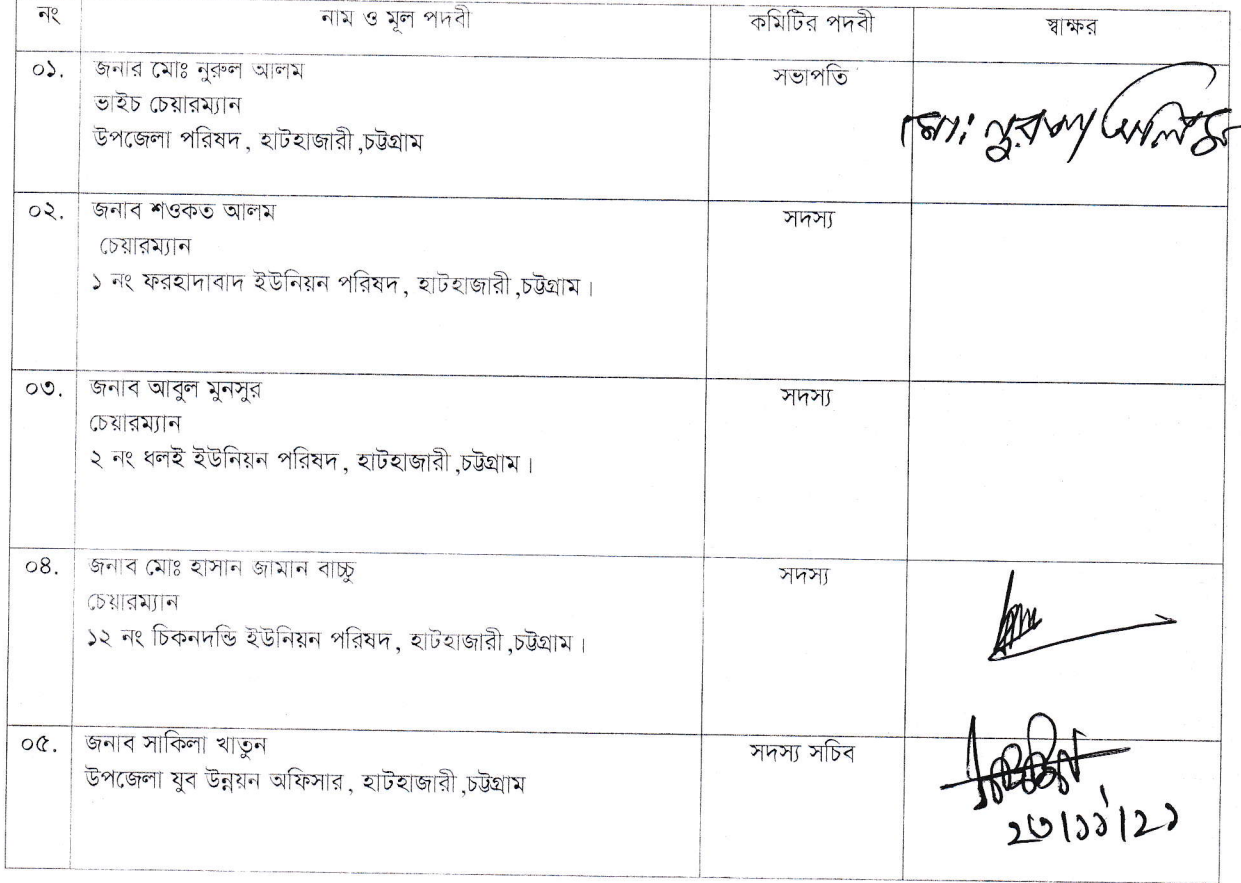 নং নাম ও মূল পদবী কমিটির পদবী স্বাক্ষর
০১. জনাব মোঃ নুরুল আলম সভাপতি
ভাইচ চেয়ারম্যান
উপজেলা পরিষদ, হাটহাজারী,চট্টগ্রাম
মোঃ নুরুল আলম
০২. জনাব শওকত আলম সদস্য
চেয়ারম্যান
১ নং ফরহাদাবাদ ইউনিয়ন পরিষদ, হাটহাজারী,চট্টগ্রাম।
০৩. জনাব আবুল মুনসুর সদস্য
চেয়ারম্যান
২ নং ধলই ইউনিয়ন পরিষদ, হাটহাজারী,চট্টগ্রাম।
০৪. জনাব মোঃ হাসান জামান বাচ্চু সদস্য
চেয়ারম্যান
১২ নং চিকনদন্ডি ইউনিয়ন পরিষদ, হাটহাজারী,চট্টগ্রাম।
০৫. জনাব সাকিলা খাতুন সদস্য সচিব
উপজেলা যুব উন্নয়ন অফিসার, হাটহাজারী,চট্টগ্রাম
২৩/১১/২১